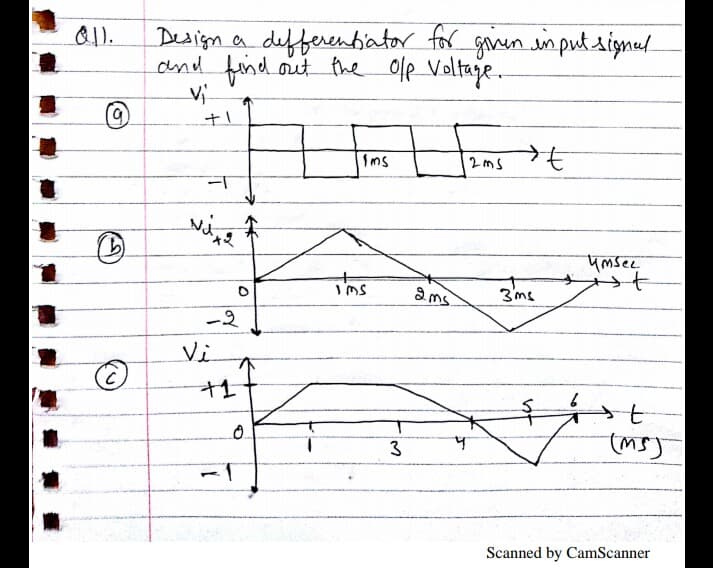 Q11. Design a differentiator for given input signal
and find out the O/p Voltage.
(a)
Vi
+1
-1
1ms
2ms
t
(b)
Vi
+2
-2
0
1ms
2ms
3ms
4msec
t
(c)
Vi
+1
-1
0
1
3
4
5
6
t
(ms)
Scanned by CamScanner